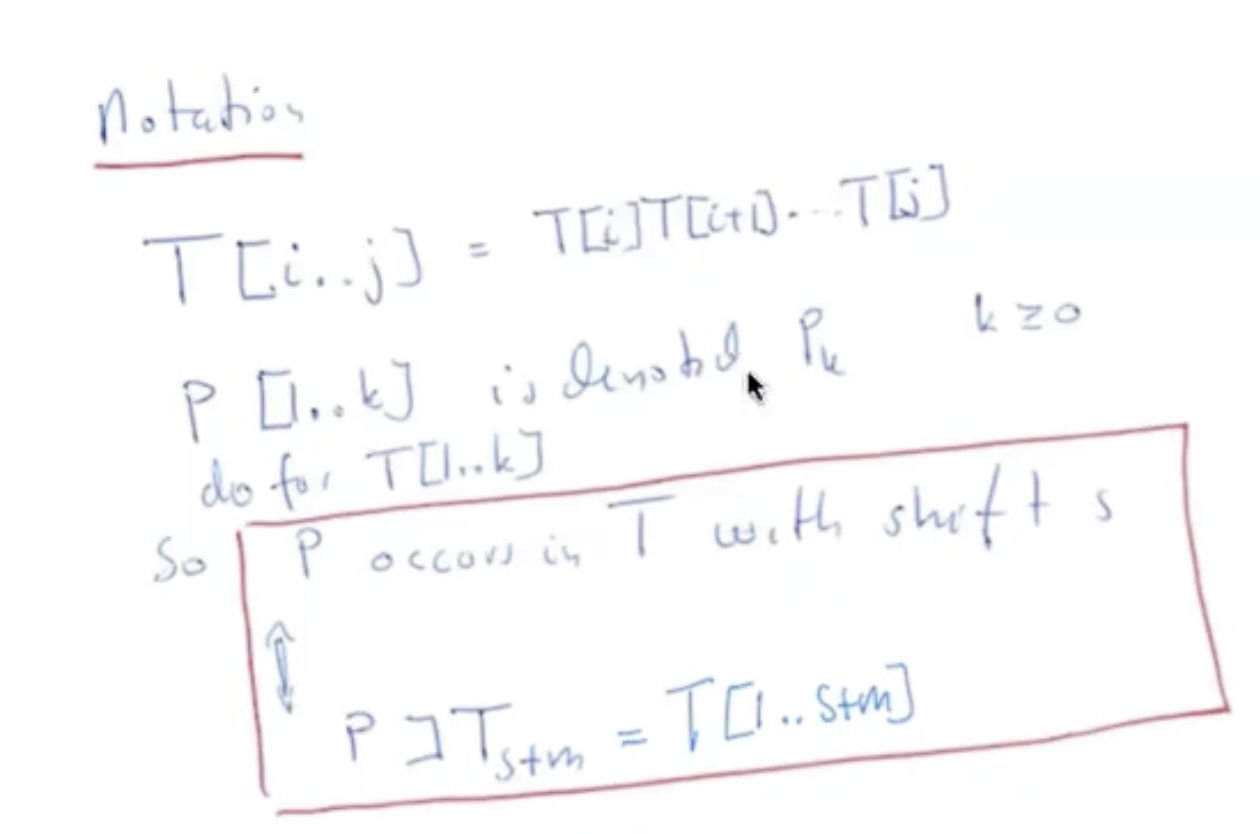 Notation
T[i..j] = T[i]T[i+1]....T[j]
P [1..k] is denoted Pₖ k ≥ 0
do for T[1..k]
So P occurs in T with shift s
⇕
P ⊐ Tₛ₊ₘ = T[1..s+m]